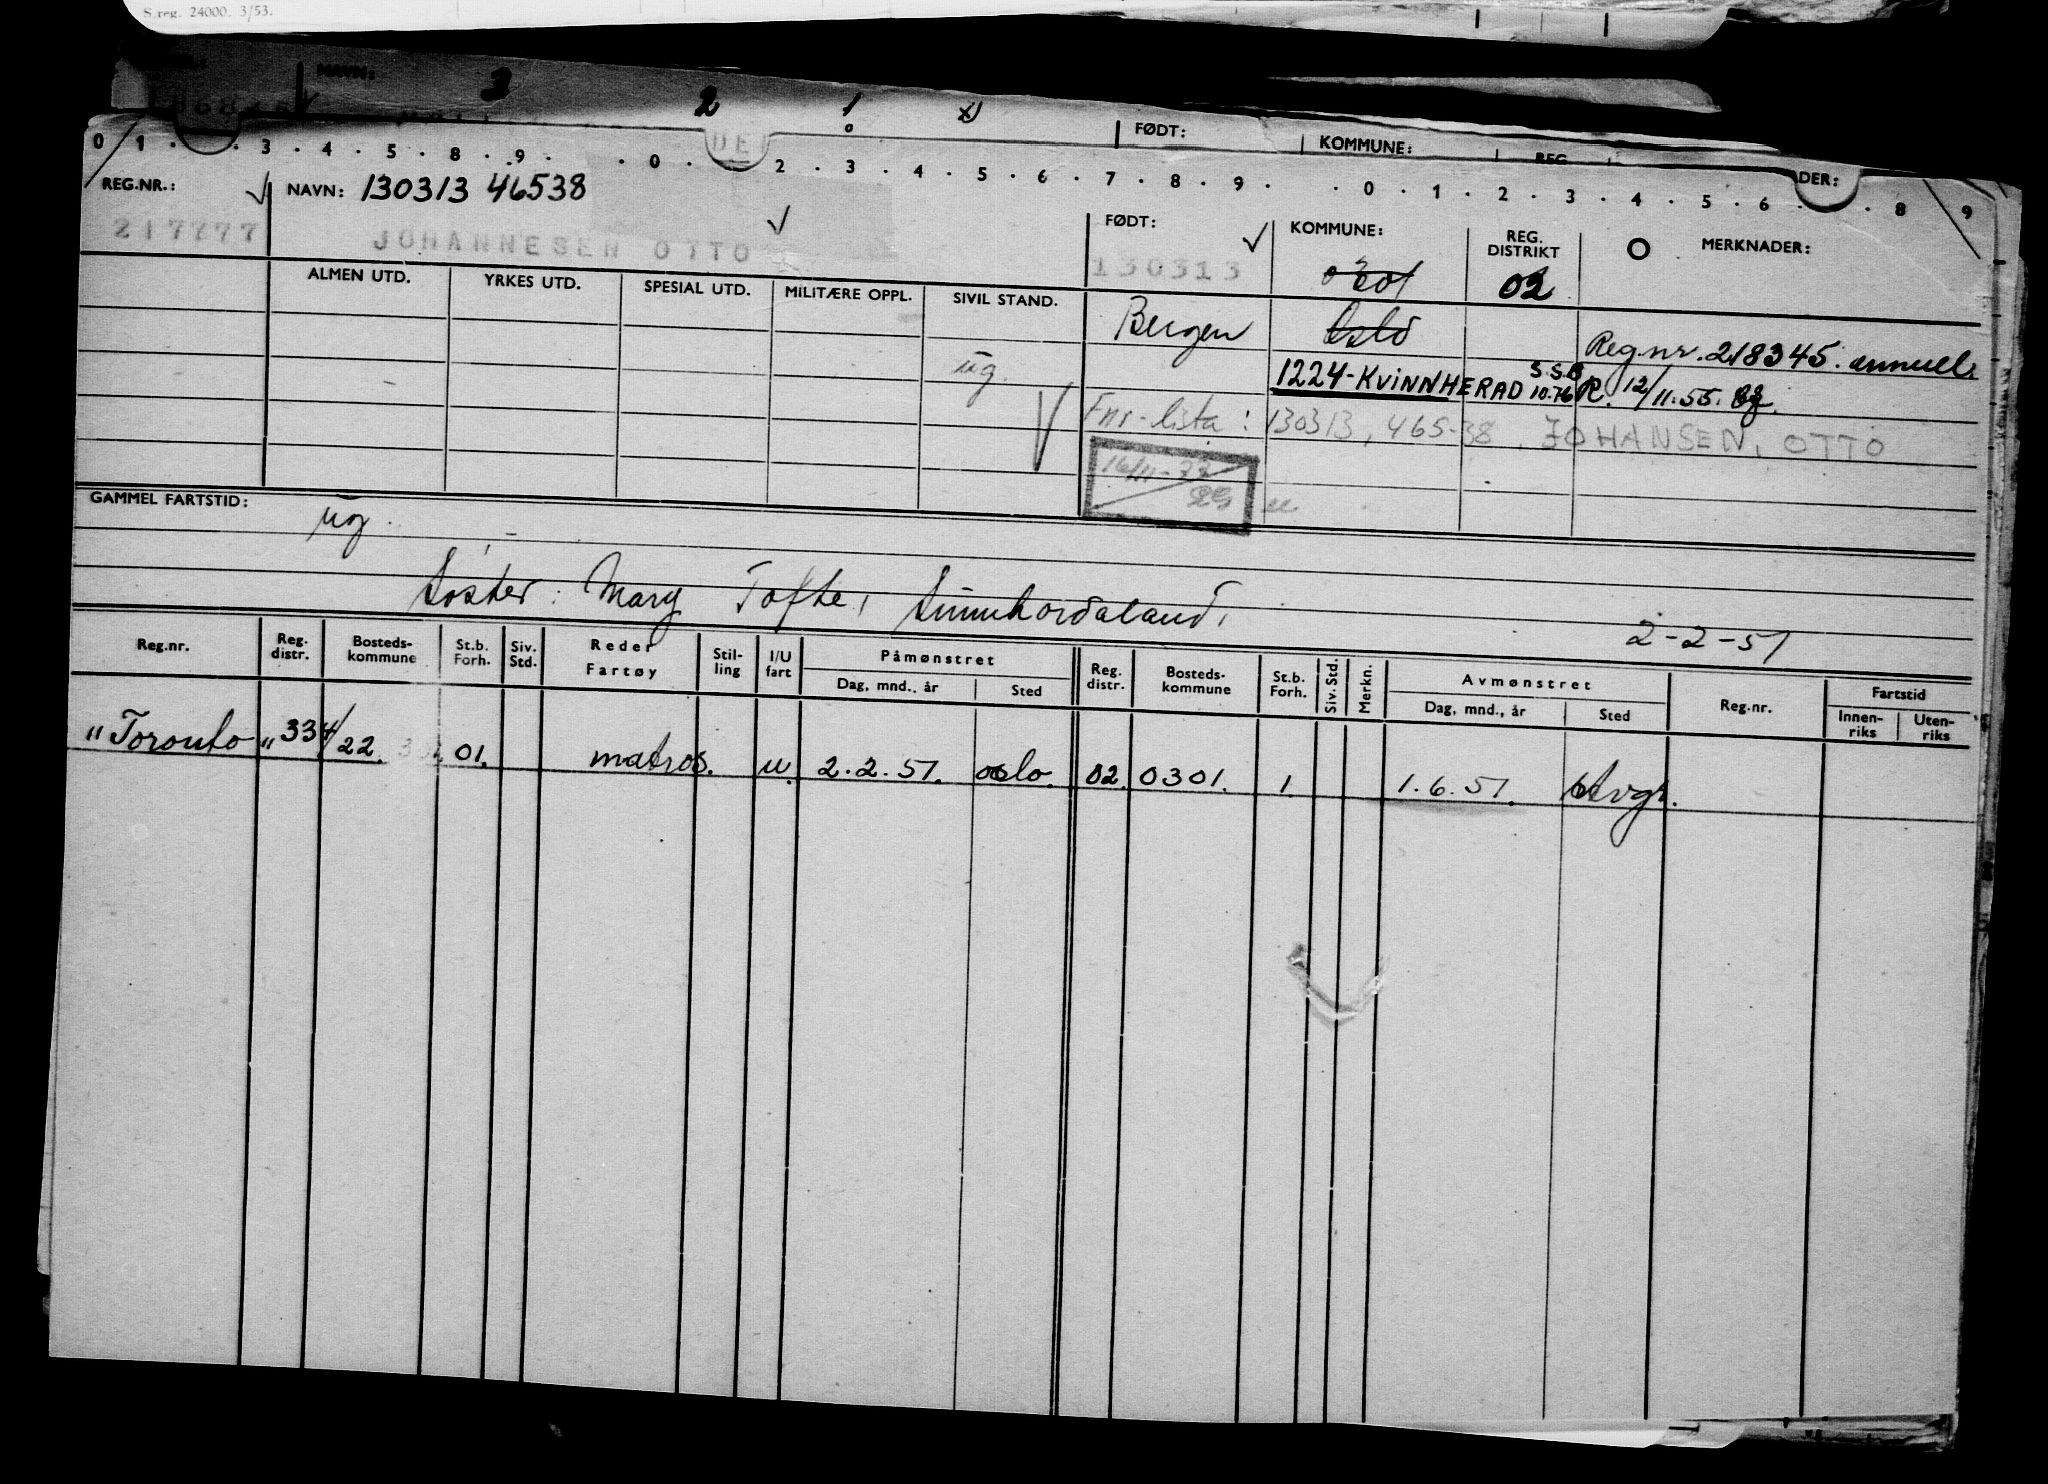 S.reg. 24000. 3/53.
NAVN:
3 2 1
FØDT: KOMMUNE: REG.
0 1 . . 3 . 4 . 5 . 8 . 9 . . 0 . . 2 . 3 . 4 . 5 . 6 . 7 . 8 . 9 . . 0 . 1 . 2 . 3 . 4 . 5 . 6 . . 8 9
DER:
REG.NR.: NAVN: 130313 46538 FØDT: KOMMUNE: REG. DISTRIKT MERKNADER:
217777 JOHANNESEN OTTO 130313 02
ALMEN UTD. YRKES UTD. SPESIAL UTD. MILITÆRE OPPL. SIVIL STAND.
Bergen Oslo Reg.nr. 218345. annull.
ug. 1224-KVINNHERAD S.S.B 10.76 R. 12/11.55.
Fnr-lista: 130313, 465-38, JOHANSEN, OTTO
16/11-77
GAMMEL FARTSTID:
ug.
Søster: Mary Tofte, Sunnhordaland,
2-2-51
Reg.nr. Reg. distr. Bosteds-kommune St.b. Forh. Siv. Std. Reder Fartøy Stil-ling I/U fart Påmønstret Dag, mnd., år Sted Reg. distr. Bosteds-kommune St.b. Forh. Siv. Std. Merkn. Avmønstret Dag, mnd., år Sted Reg.nr. Fartstid Innen-riks Uten-riks
"Toronto" 334/22. 01. matros. u. 2.2.51. oslo. 02. 0301. 1. 1.6.51. Stvgr.